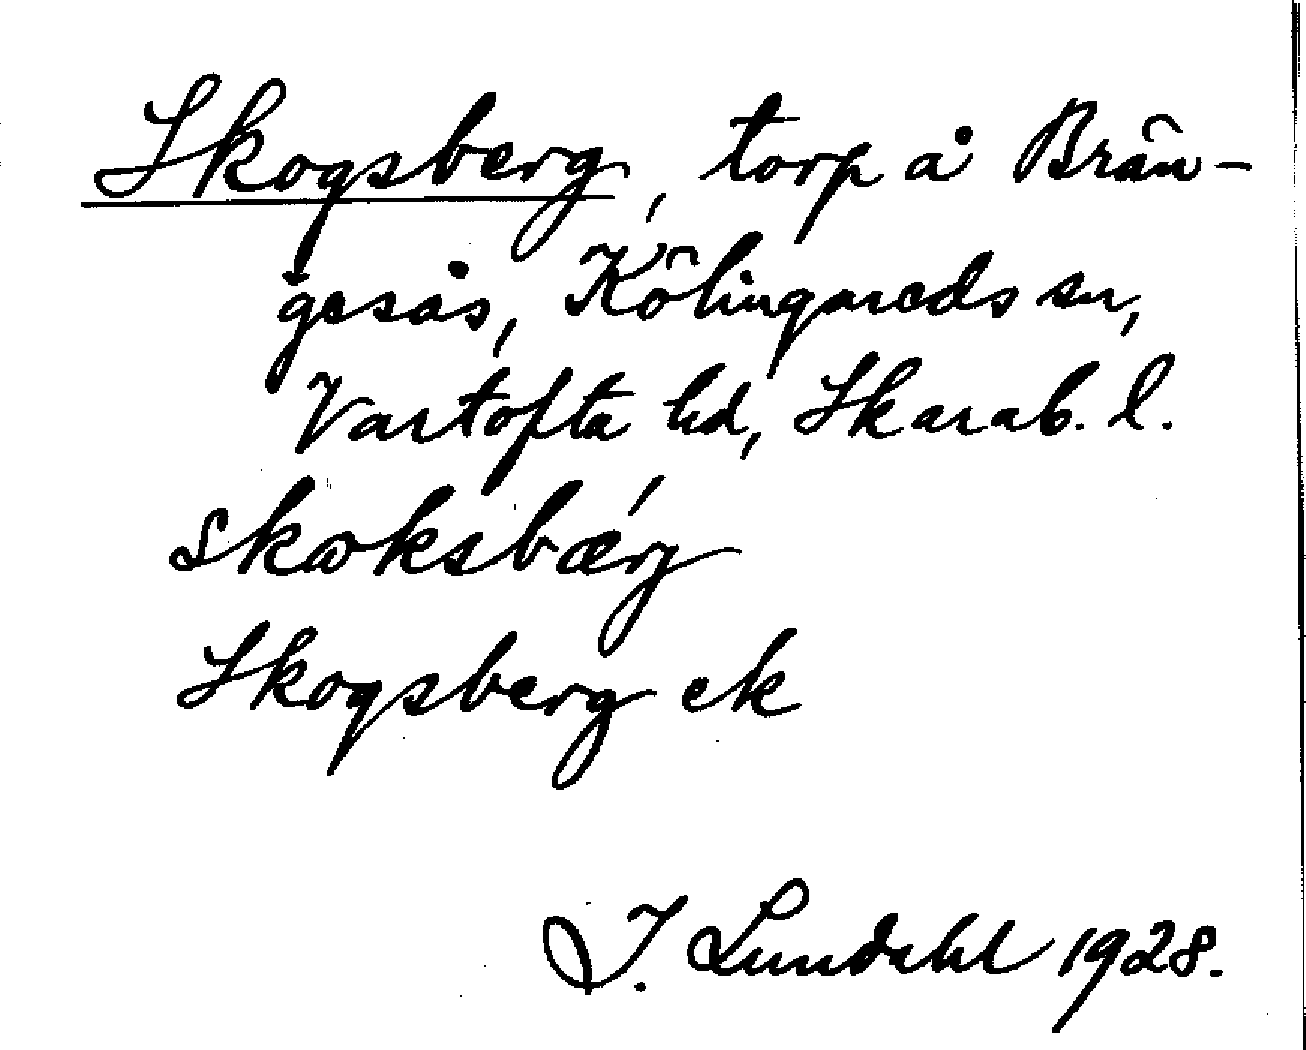 Skogsberg, torp å Brän-
gesås, Kölingareds sn,
Vartofta hd, Skarab. l.
skoksbærg
Skogsberg ek
I. Lundahl 1928.